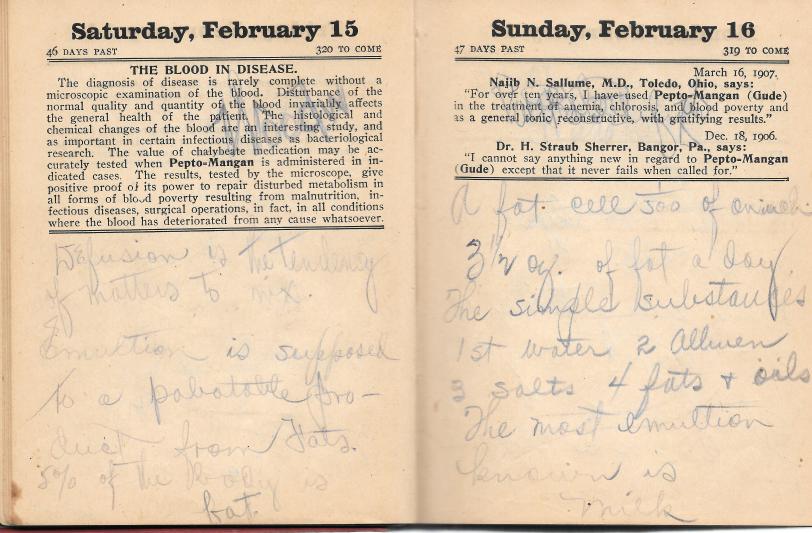 Saturday, February 15
46 DAYS PAST 320 TO COME
THE BLOOD IN DISEASE.
The diagnosis of disease is rarely complete without a
microscopic examination of the blood. Disturbance of the
normal quality and quantity of the blood invariably affects
the general health of the patient. The histological and
chemical changes of the blood are an interesting study, and
as important in certain infectious diseases as bacteriological
research. The value of chalybeate medication may be ac-
curately tested when Pepto-Mangan is administered in in-
dicated cases. The results, tested by the microscope, give
positive proof of its power to repair disturbed metabolism in
all forms of blood poverty resulting from malnutrition, in-
fectious diseases, surgical operations, in fact, in all conditions
where the blood has deteriorated from any cause whatsoever.
Defusion is the tendency
of matters to mix.
Emultion is supposed
to a pabatable pro-
duct from Fats.
5% of the body is
fat.
Sunday, February 16
47 DAYS PAST 319 TO COME
March 16, 1907.
Najib N. Sallume, M.D., Toledo, Ohio, says:
"For over ten years, I have used Pepto-Mangan (Gude)
in the treatment of anemia, chlorosis, and blood poverty and
as a general tonic reconstructive, with gratifying results."
Dec. 18, 1906.
Dr. H. Straub Sherrer, Bangor, Pa., says:
"I cannot say anything new in regard to Pepto-Mangan
(Gude) except that it never fails when called for."
A fat cell 1/500 of an inch
3 1/2 oz. of fat a day
The simple substances
1st water 2 Albumen
3 salts 4 fats + oils
The most emultion
known is
milk